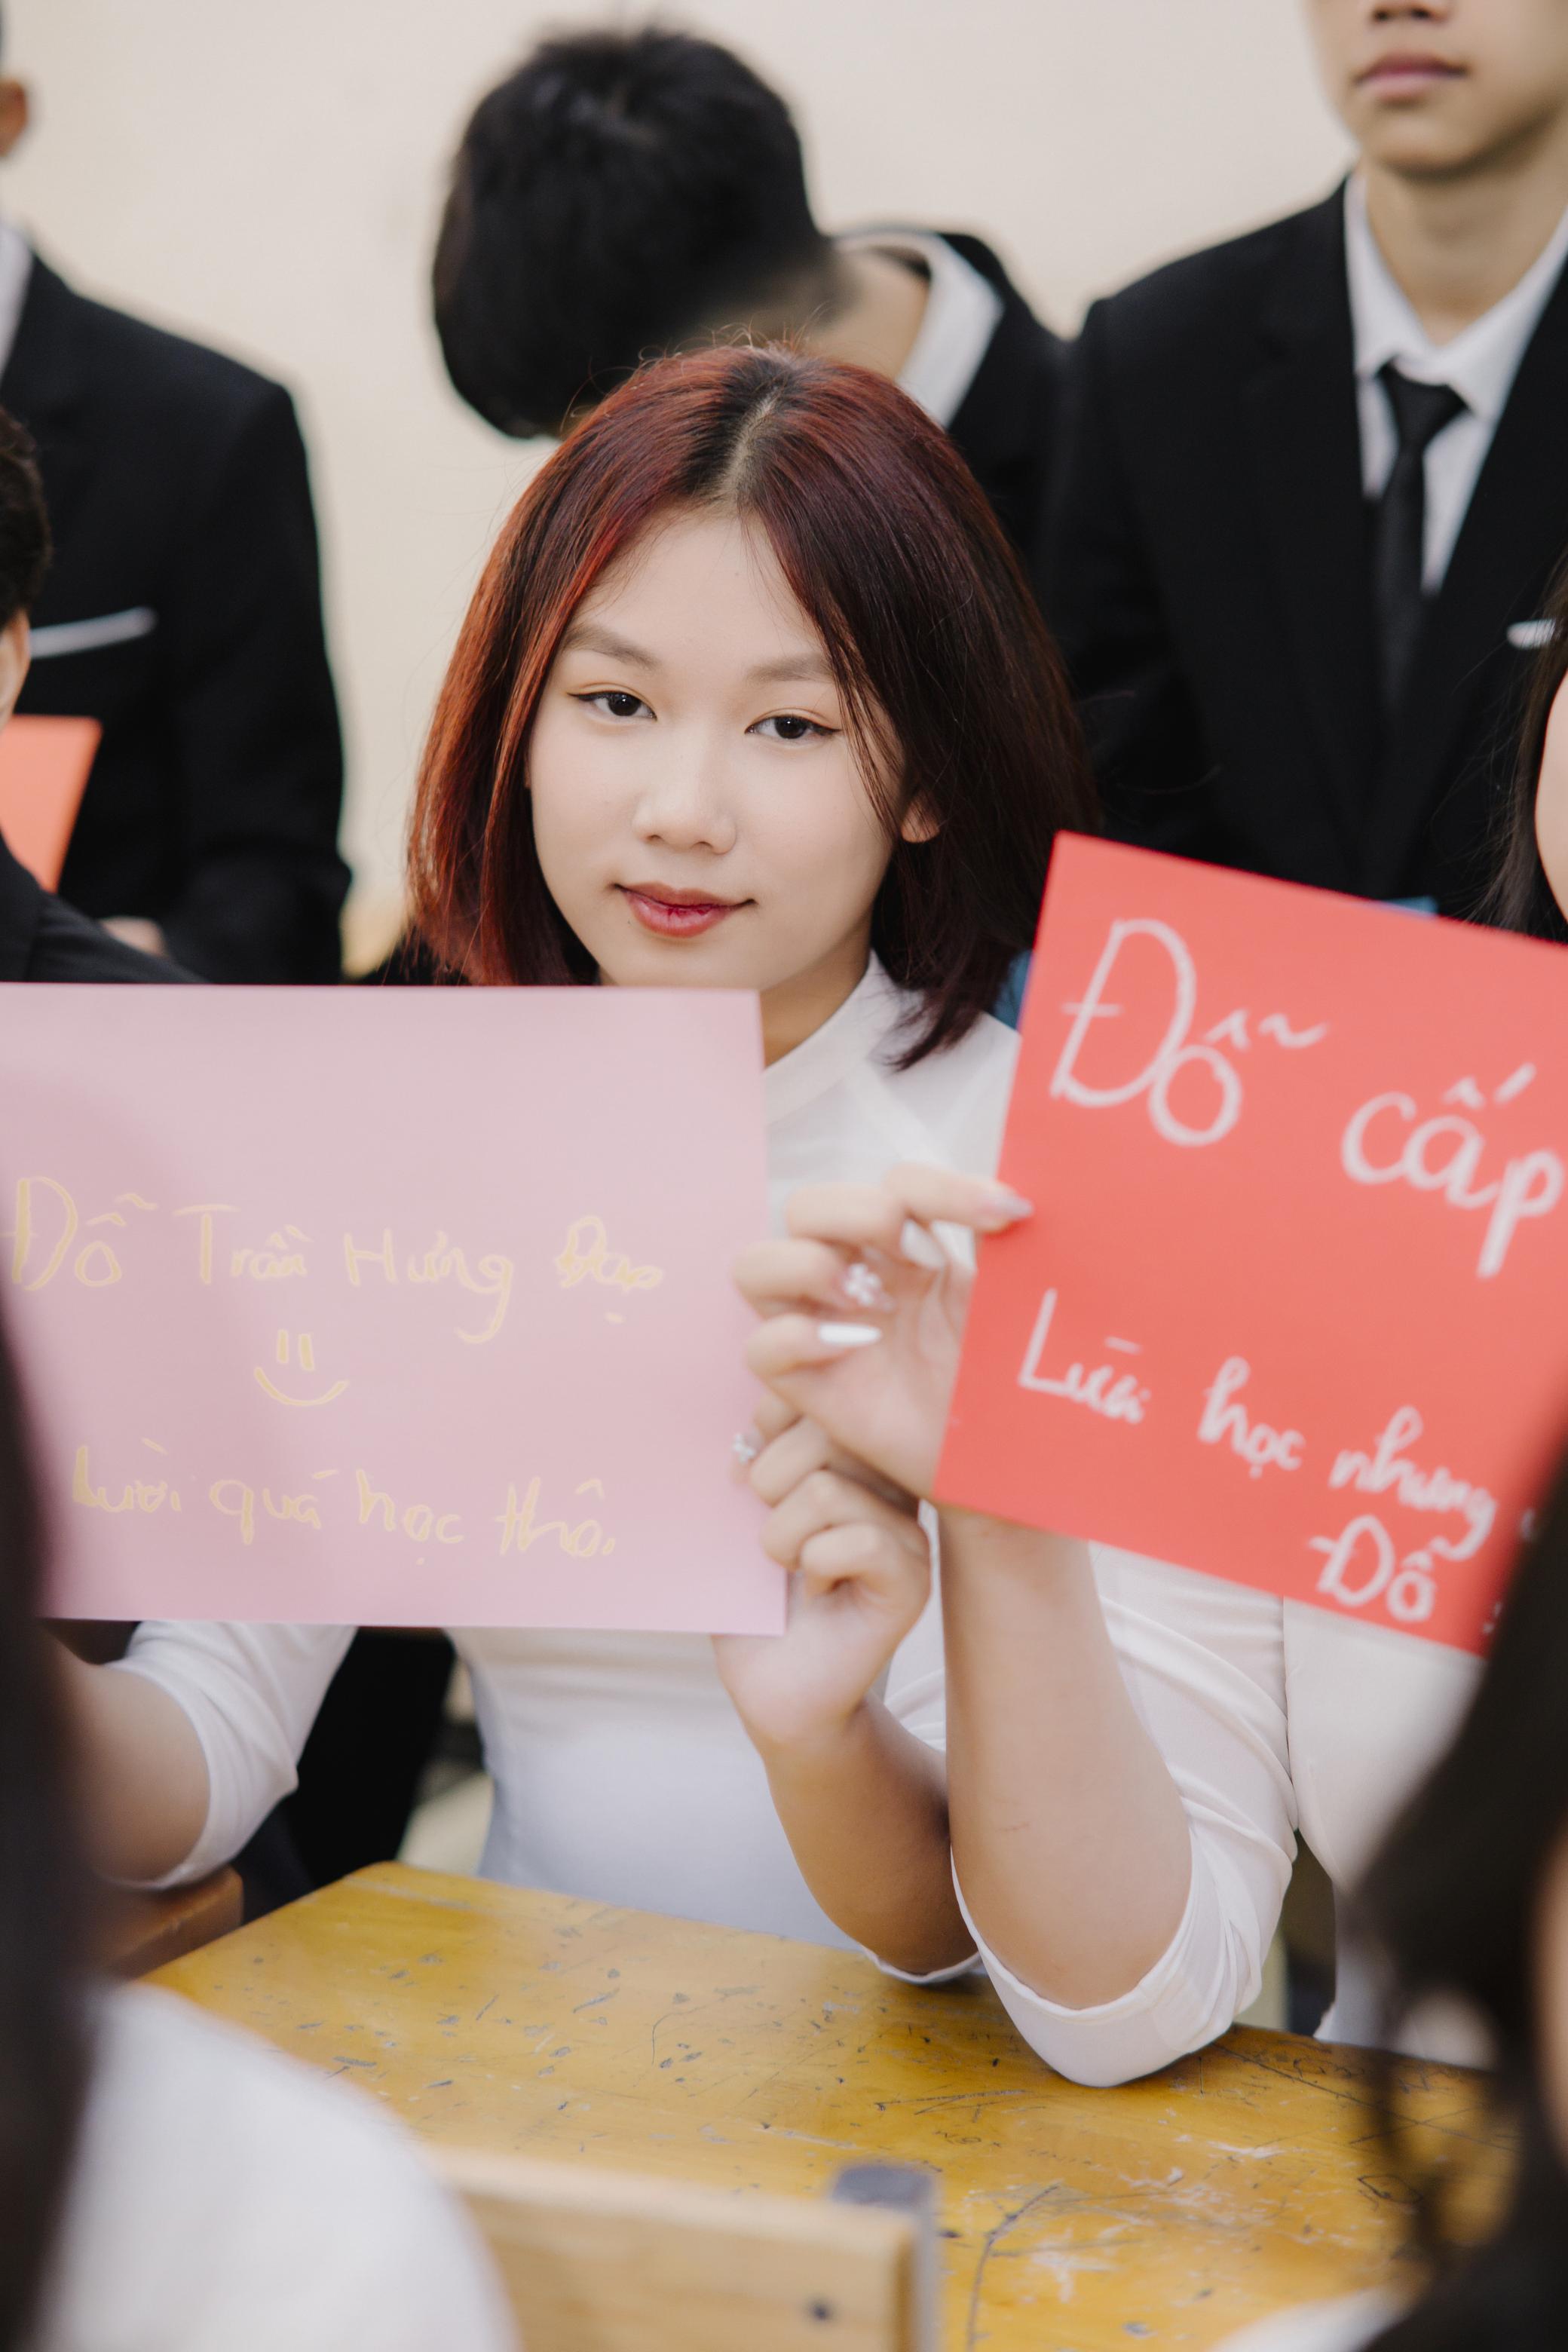 Đỗ Trần Hưng Đạo
Lười quá học thôi
Đỗ cấp
Lười học nhưng
Đỗ